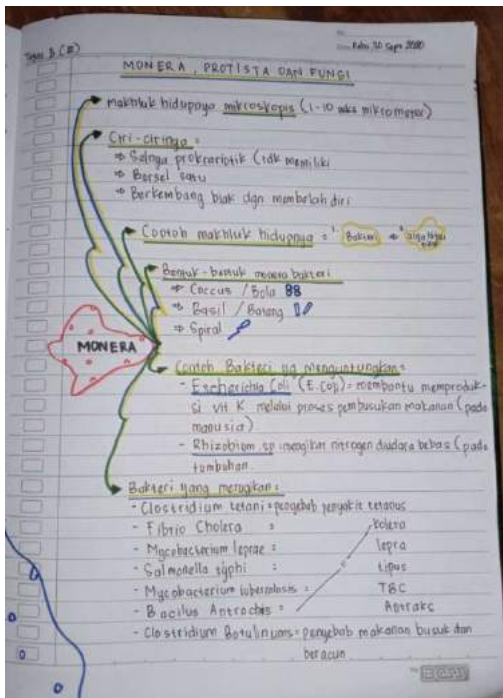 Tugas B (III)
Rabu, 30 Sept 2020
MONERA, PROTISTA DAN FUNGI
Makhluk hidupnya mikroskopis (1-10 mikrometer)
Ciri-cirinya =
⇒ Selnya prokariotik (tdk memiliki
⇒ Bersel satu
⇒ Berkembang biak dgn membelah diri
Contoh makhluk hidupnya = Bakteri
Bentuk-bentuk monera bakteri
⇒ Coccus / Bola
⇒ Basil / Batang
⇒ Spiral
MONERA
Contoh Bakteri yg menguntungkan =
- Escherichia Coli (E.Coli) = membantu memproduk-
si vit K melalui proses pembusukan makanan (pada
manusia)
- Rhizobium sp mengikat nitrogen diudara bebas (pada
tumbuhan.
Bakteri yang merugikan =
- Clostridium tetani = penyebab penyakit tetanus
- Fibrio Cholera = kolera
- Mycobacterium leprae = lepra
- Salmonella typhi = tipus
- Mycobacterium tuberculosis = TBC
- Bacilus Antrachis = Antraks
- Clostridium Botulinums = penyebab makanan busuk dan
beracun